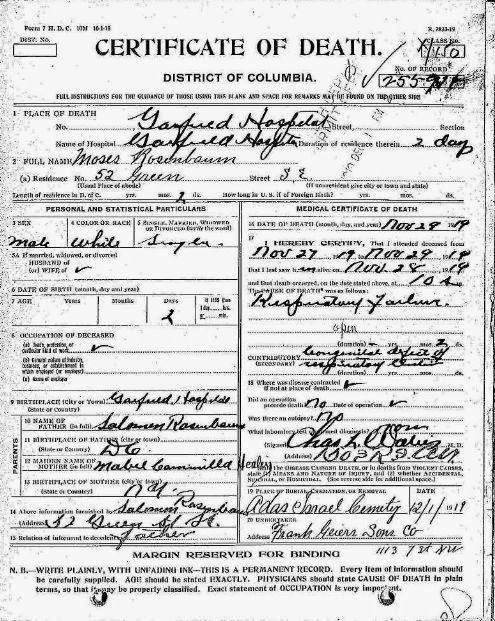 Form 7 H. D. C. 10M 10-1-19
DIST. No.
CERTIFICATE OF DEATH.
CLASS No.
No. OF RECORD
DISTRICT OF COLUMBIA.
FULL INSTRUCTIONS FOR THE GUIDANCE OF THOSE USING THIS BLANK AND SPACE FOR REMARKS MAY BE FOUND ON THE OTHER SIDE
1 PLACE OF DEATH Garfield Hospital
No. Street, Section
Name of Hospital Garfield Duration of residence therein 2 day
2 FULL NAME Moses Rosenbaum
(a) Residence No. 52 Green Street S E
(Usual Place of abode) (If nonresident give city or town and state)
Length of residence in D. of C. yrs. mos. 2 ds. How long in U. S. if of Foreign Birth? yrs. mos. ds.
PERSONAL AND STATISTICAL PARTICULARS
3 SEX 4 COLOR OR RACE 5 SINGLE, MARRIED, WIDOWED
OR DIVORCED (write the word)
Male White Single
5A If married, widowed, or divorced
HUSBAND OF
(or) WIFE OF
6 DATE OF BIRTH (month, day, and year)
7 AGE Years Months Days If LESS than
1 day, hrs.
or min.
2
8 OCCUPATION OF DECEASED
(a) Trade, profession, or
particular kind of work
(b) General nature of industry,
business, or establishment in
which employed (or employer)
(c) Name of employer
9 BIRTHPLACE (City or Town) Garfield Hospital
(State or Country)
PARENTS
10 NAME OF
FATHER (in full) Solomon Rosenbaum
11 BIRTHPLACE OF FATHER (city or town)
(State or Country) D.C.
12 MAIDEN NAME OF
MOTHER (in full) Mabel Healey
13 BIRTHPLACE OF MOTHER (city or town)
(State or Country)
14 Above information furnished by Solomon Rosenbaum
(Address) 52 Green St SE.
15 Relation of informant to decedent Father
MEDICAL CERTIFICATE OF DEATH
16 DATE OF DEATH (month, day, and year) Nov 28 1919
17 I HEREBY CERTIFY, That I attended deceased from
Nov 27 1919 to Nov 28 1919
that I last saw alive on Nov 28 1919
and that death occurred, on the date stated above, at 10
The CAUSE OF DEATH was as follows:
Respiratory Failure.
(duration) yrs. mos. 2 ds.
CONTRIBUTORY Congenital defect of
(SECONDARY) respiratory
18 Where was disease contracted
if not at place of death?
Did an operation
precede death? No Date of operation
Was there an autopsy? No
What laboratory test confirmed diagnosis? None
(Signed) M. D.
(Address)
19 PLACE OF BURIAL, CREMATION, OR REMOVAL DATE
Adas Israel Cemetery 12/1/1919
20 UNDERTAKER Frank Geiers Sons Co
Address 1113 7th St NW
MARGIN RESERVED FOR BINDING
N. B.—WRITE PLAINLY, WITH UNFADING INK—THIS IS A PERMANENT RECORD. Every item of information should
be carefully supplied. AGE should be stated EXACTLY. PHYSICIANS should state CAUSE OF DEATH in plain
terms, so that it may be properly classified. Exact statement of OCCUPATION is very important.